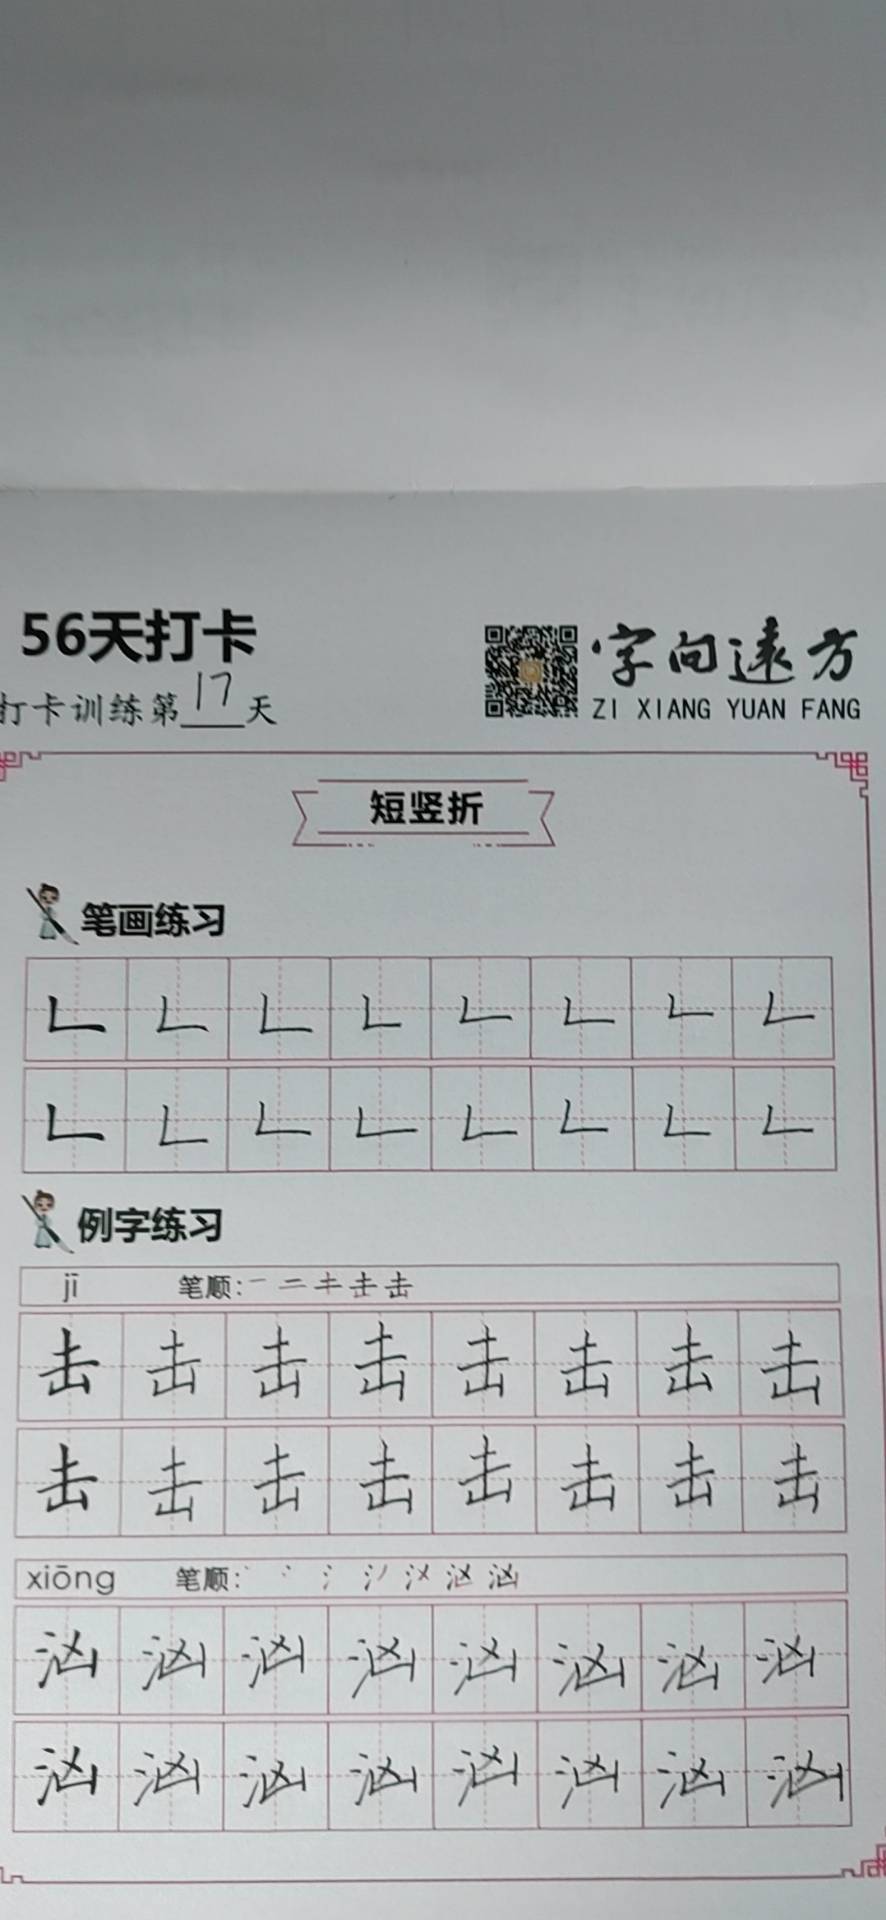 56天打卡
打卡训练第17天
字向遠方
ZI XIANG YUAN FANG
短竖折
笔画练习
𠃊 𠃊 𠃊 𠃊 𠃊 𠃊 𠃊 𠃊
𠃊 𠃊 𠃊 𠃊 𠃊 𠃊 𠃊 𠃊
例字练习
jī 笔顺: 一 二 キ 击 击
击 击 击 击 击 击 击 击
击 击 击 击 击 击 击 击
xiōng 笔顺: 汹
汹 汹 汹 汹 汹 汹 汹 汹
汹 汹 汹 汹 汹 汹 汹 汹